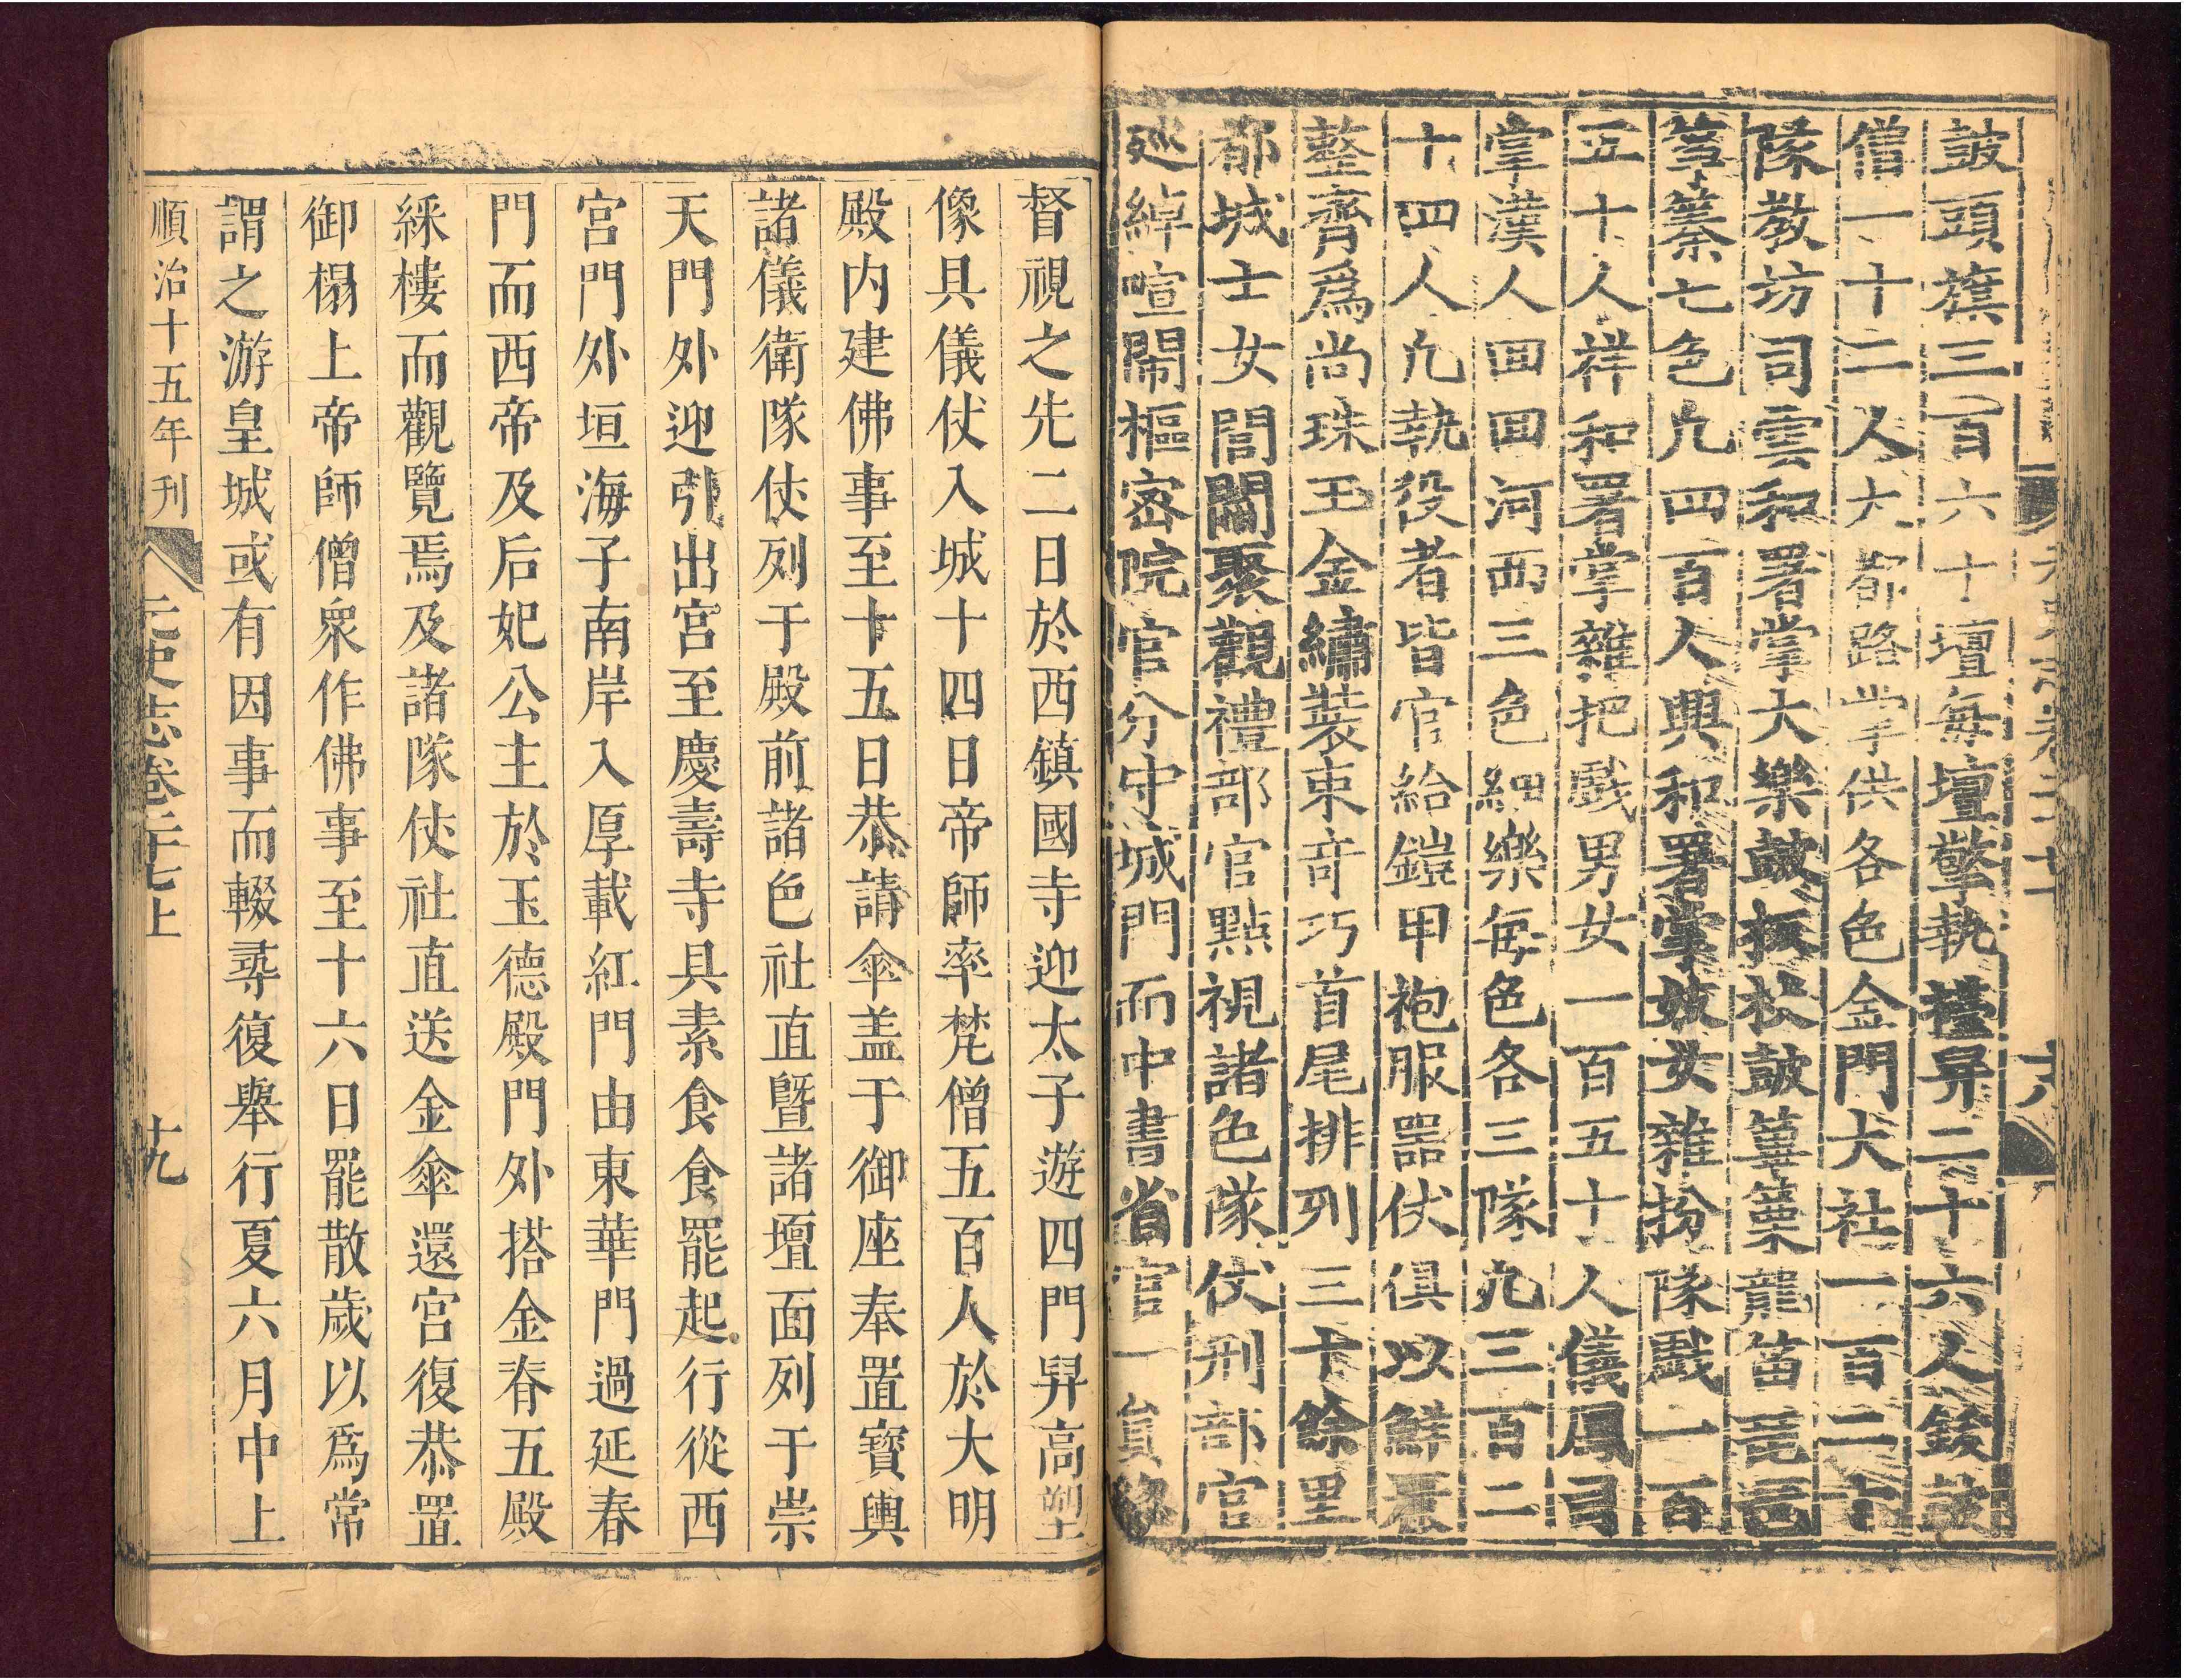 鼓頭旗三百六十壇每壇擎執擡舁二十六人鈸鼓
僧一十二人大都路掌供各色金門大社一百二十
隊教坊司雲和署掌大樂鼓板杖鼓篳篥龍笛琵琶
箏𥱧七色凡四百人興和署掌妓女雜扮隊戲一百
五十人祥和署掌雜把戲男女一百五十人儀鳳司
掌漢人囬囬河西三色細樂每色各三隊凡三百二
十四人凡執役者皆官給鎧甲袍服噐仗俱以鮮麗
整齊爲尚珠玉金繡裝束竒巧首尾排列三十餘里
都城士女閭閻聚觀禮部官點視諸色隊仗刑部官
廵綽喧鬧樞宻院官分守城門而中書省官一貟緫
六
督視之先二日於西鎮國寺迎太子遊四門舁高塑
像具儀仗入城十四日帝師率梵僧五百人於大明
殿内建佛事至十五日恭請傘盖于御座奉置寳輿
諸儀衛隊仗列于殿前諸色社直曁諸壇面列于崇
天門外迎引出宮至慶壽寺具素食食罷起行從西
宮門外垣海子南岸入厚載紅門由東華門過延春
門而西帝及后妃公主於玉德殿門外搭金脊五殿
綵樓而觀覽焉及諸隊仗社直送金傘還宮復恭置
御榻上帝師僧衆作佛事至十六日罷散歲以爲常
謂之游皇城或有因事而輟尋復舉行夏六月中上
順治十五年刊
元史志卷二十七上
十九